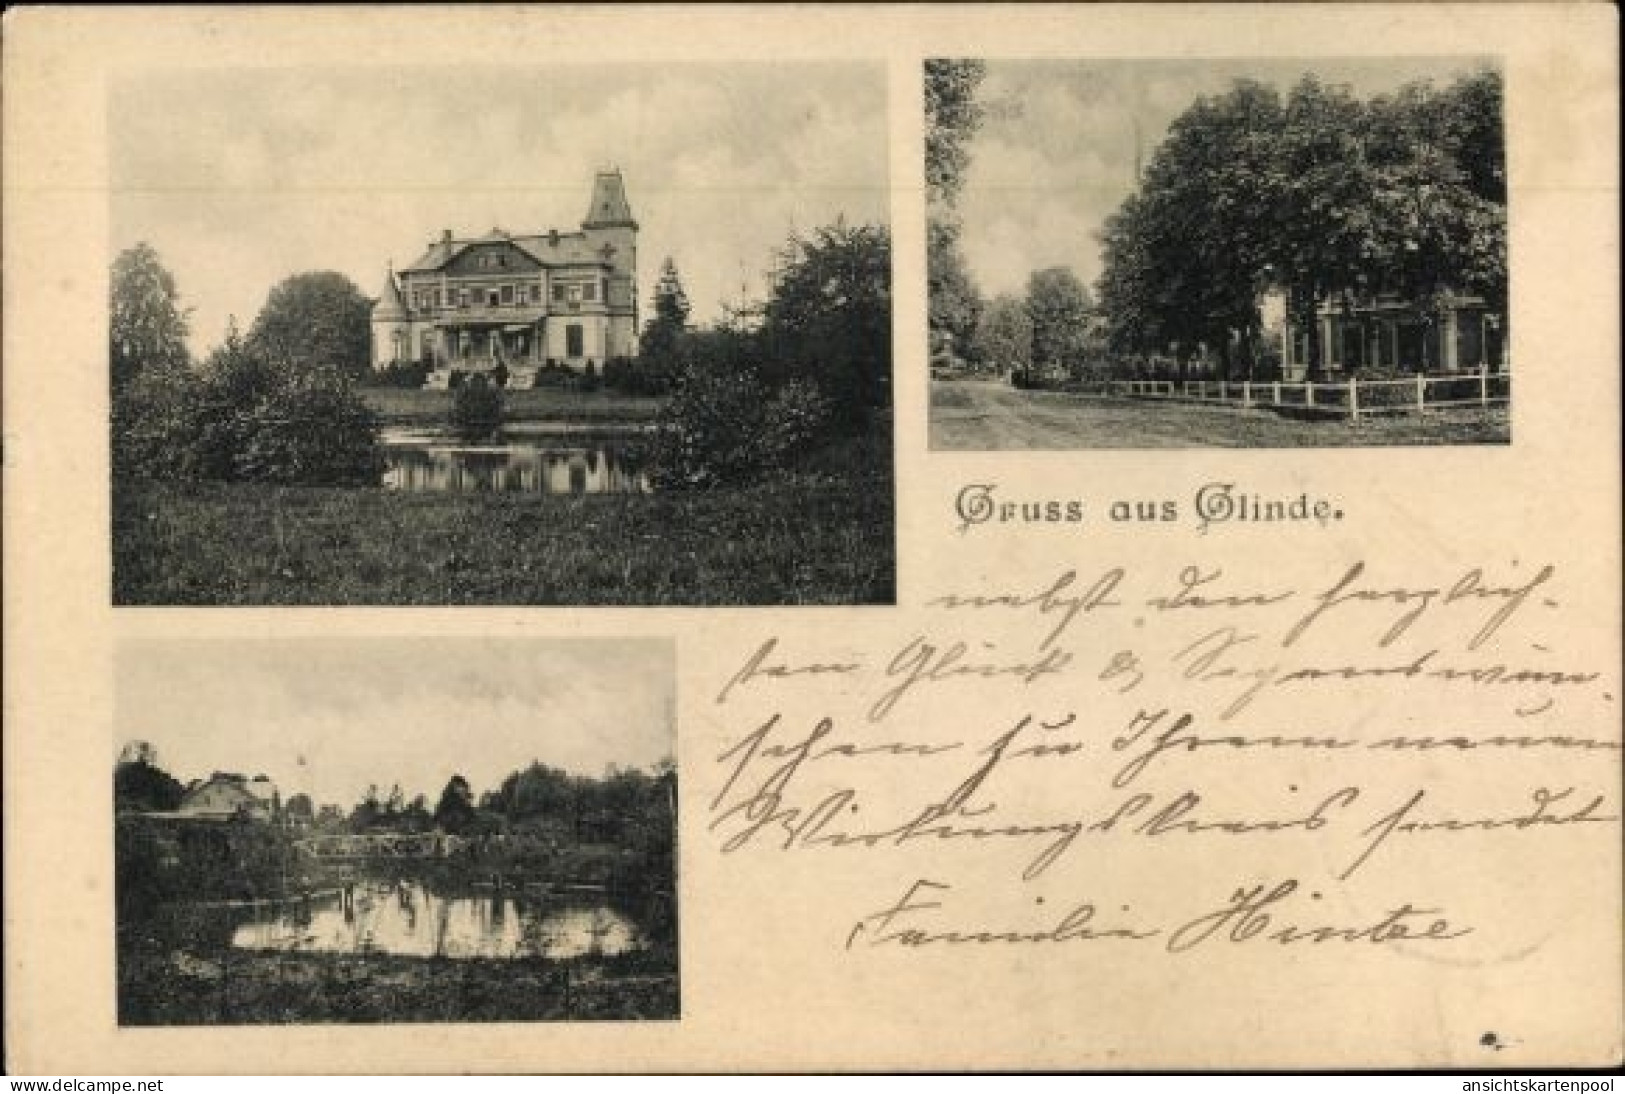 Gruss aus Glinde.
nebst den herzlich-
sten Glück & Segenswün
schen zu Ihrem neuen
Wirkungskreis sendet
Familie Hintze
www.delcampe.net
ansichtskartenpool